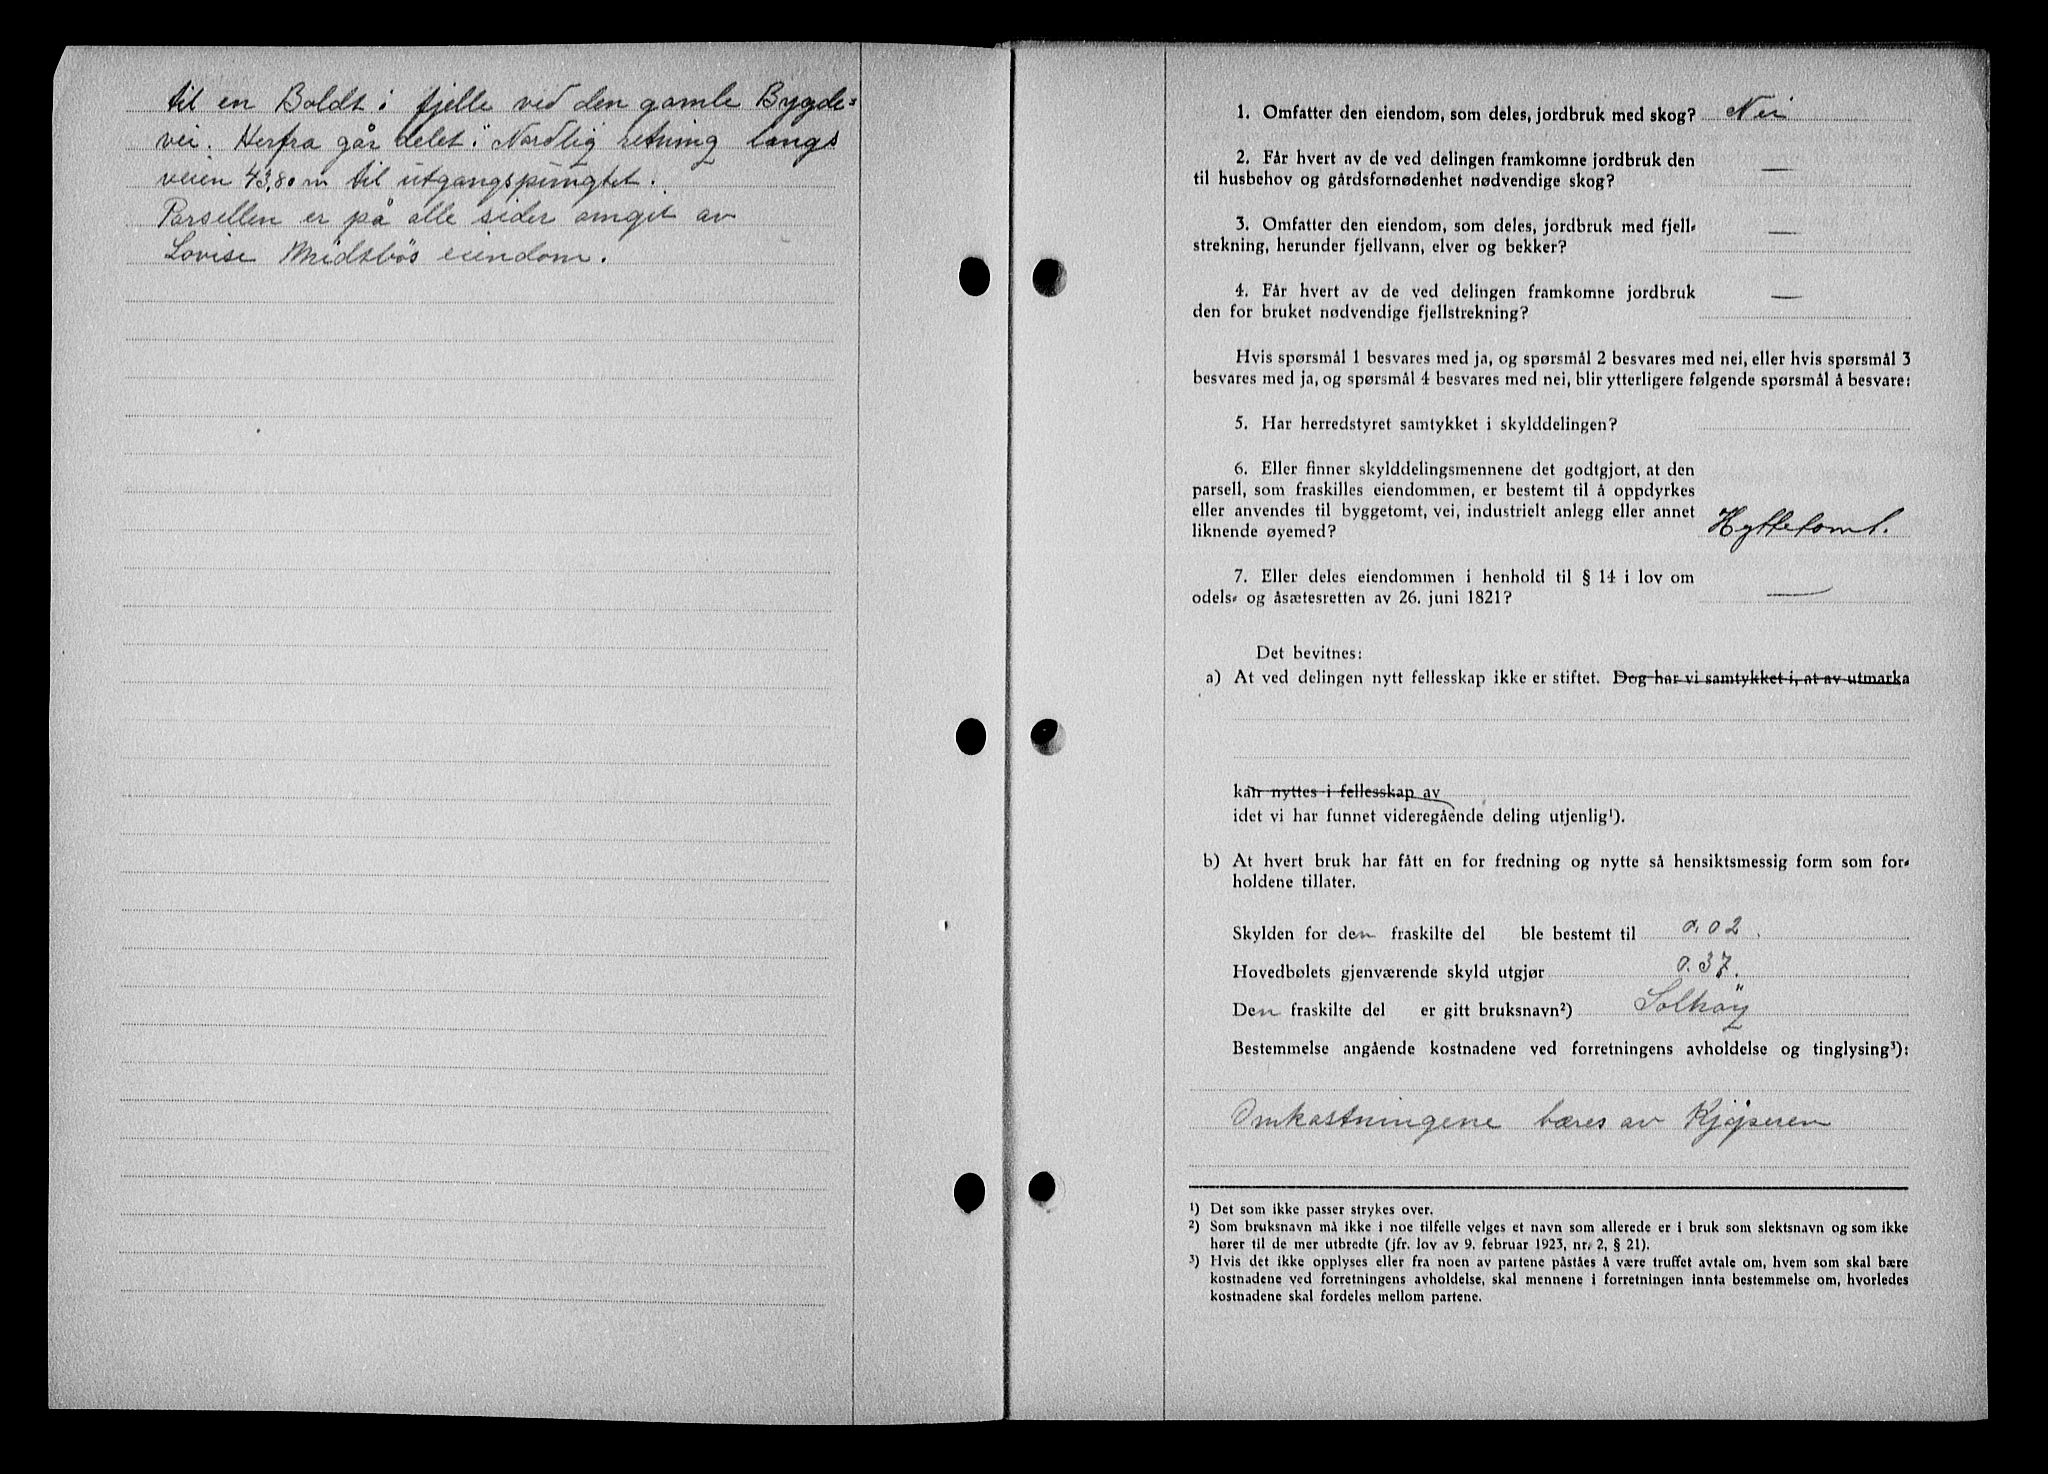 til en Boldt i fjelle ved den gamle Bygde=
vei. Herfra går delet i Nordlig retning langs
veien 43,80 m til utgangspungtet.
Parsellen er på alle sider omgit av
Lovise Midtbøs eiendom.
1. Omfatter den eiendom, som deles, jordbruk med skog? Nei
2. Får hvert av de ved delingen framkomne jordbruk den
til husbehov og gårdsfornødenhet nødvendige skog? —
3. Omfatter den eiendom, som deles, jordbruk med fjell-
strekning, herunder fjellvann, elver og bekker? —
4. Får hvert av de ved delingen framkomne jordbruk —
den for bruket nødvendige fjellstrekning?
Hvis spørsmål 1 besvares med ja, og spørsmål 2 besvares med nei, eller hvis spørsmål 3
besvares med ja, og spørsmål 4 besvares med nei, blir ytterligere følgende spørsmål å besvare:
5. Har herredstyret samtykket i skylddelingen?
6. Eller finner skylddelingsmennene det godtgjort, at den
parsell, som fraskilles eiendommen, er bestemt til å oppdyrkes
eller anvendes til byggetomt, vei, industrielt anlegg eller annet
liknende øyemed? Hyttetomt.
7. Eller deles eiendommen i henhold til § 14 i lov om
odels- og åsætesretten av 26. juni 1821? —
Det bevitnes:
a) At ved delingen nytt fellesskap ikke er stiftet. Dog har vi samtykket i, at av utmarka
kan nyttes i fellesskap av
idet vi har funnet videregående deling utjenlig¹).
b) At hvert bruk har fått en for fredning og nytte så hensiktsmessig form som for-
holdene tillater.
Skylden for den fraskilte del ble bestemt til 0.02.
Hovedbølets gjenværende skyld utgjør 0.37.
Den fraskilte del er gitt bruksnavn²) Solhöy
Bestemmelse angående kostnadene ved forretningens avholdelse og tinglysing³):
Omkastningene bæres av Kjøperen
¹) Det som ikke passer strykes over.
²) Som bruksnavn må ikke i noe tilfelle velges et navn som allerede er i bruk som slektsnavn og som ikke
hører til de mer utbredte (jfr. lov av 9. februar 1923, nr. 2, § 21).
³) Hvis det ikke opplyses eller fra noen av partene påståes å være truffet avtale om, hvem som skal bære
kostnadene ved forretningens avholdelse, skal mennene i forretningen innta bestemmelse om, hvorledes
kostnadene skal fordeles mellom partene.